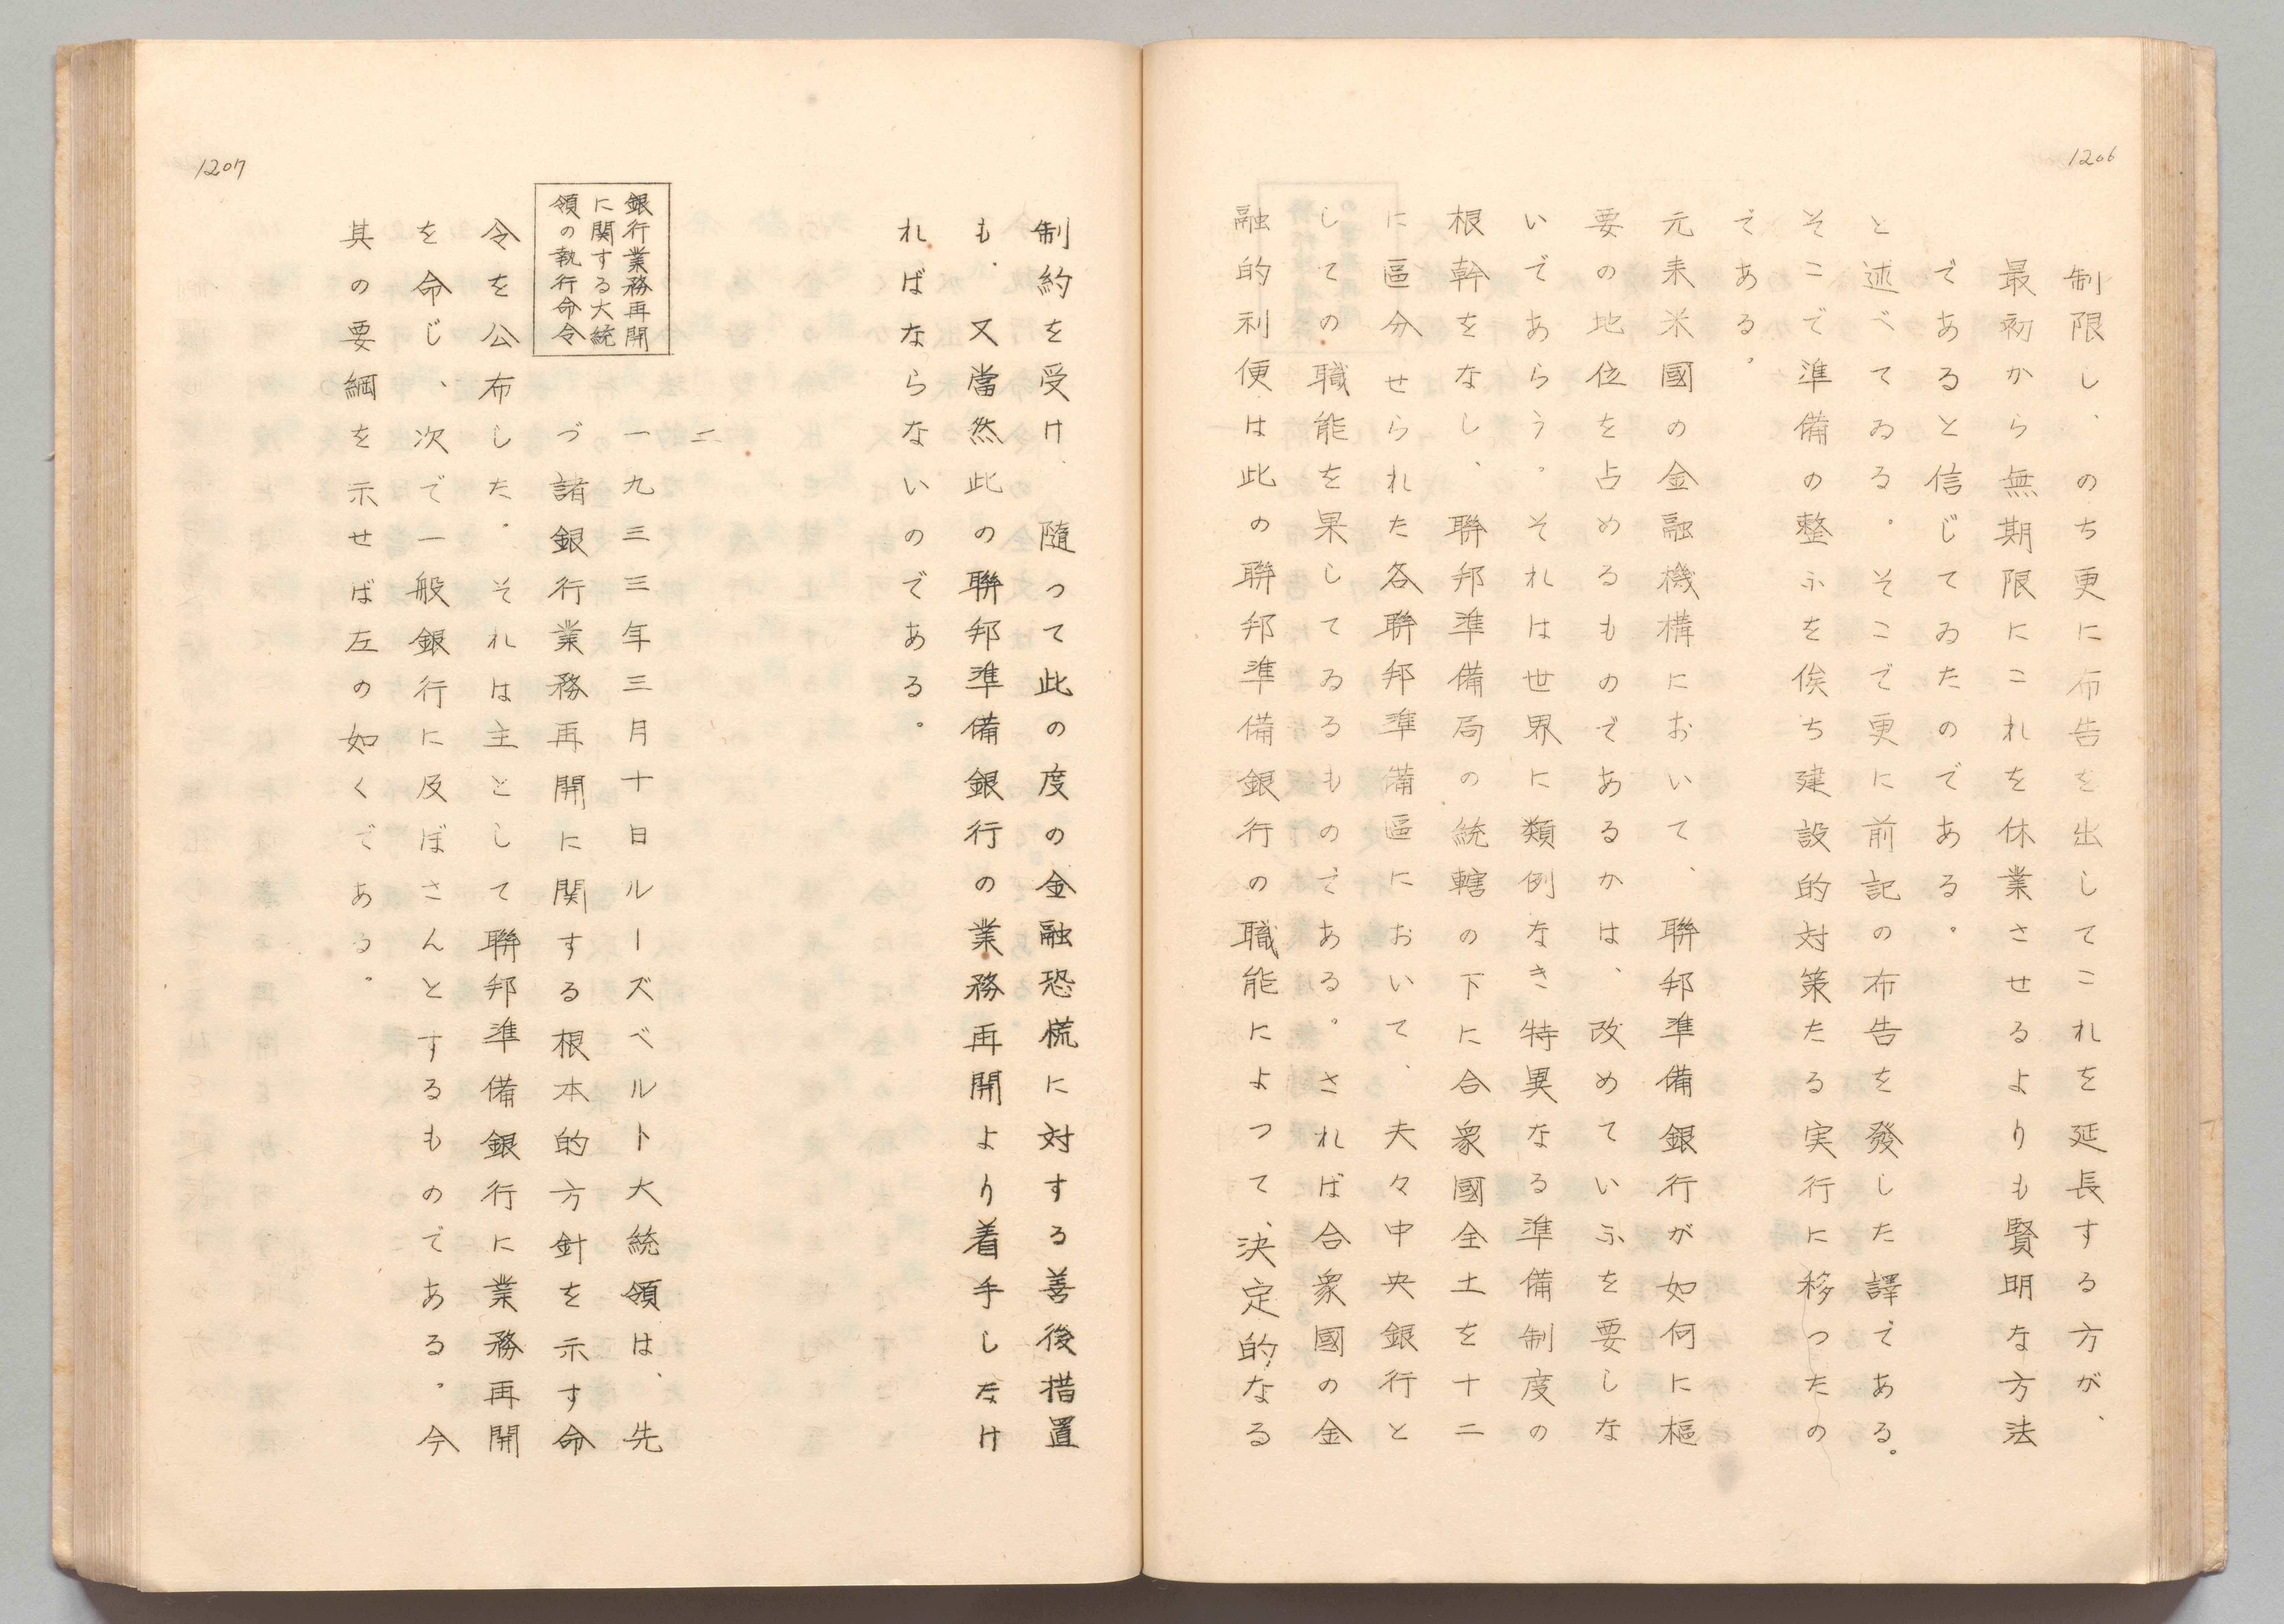 1206
制限し、のち更に布告を出してこれを延長する方が、
最初から無期限にこれを休業させるよりも賢明な方法
であると信じてゐたのである。
と述べてゐる。そこで更に前記の布告を發した譯である。
そこで準備の整ふを俟ち建設的対策たる実行に移つたの
である。
元来米國の金融機構において、聯邦準備銀行が如何に樞
要の地位を占めるものであるかは、改めていふを要しな
いであらう。それは世界に類例なき特異なる準備制度の
根幹をなし、聯邦準備局の統轄の下に合衆國全土を十二
に區分せられた各聯邦準備區において、夫々中央銀行と
しての職能を果してゐるものである。されば合衆國の金
融的利便は此の聯邦準備銀行の職能によつて、決定的なる
1207
制約を受け、随って此の度の金融恐慌に対する善後措置
も、又當然此の聯邦準備銀行の業務再開より着手しなけ
ればならないのである。
二
銀行業務再開
に関する大統
領の執行命令
一九三三年三月十日ルーズベルト大統領は、先
づ諸銀行業務再開に関する根本的方針を示す命
令を公布した。それは主として聯邦準備銀行に業務再開
を命じ、次で一般銀行に及ぼさんとするものである。今
其の要綱を示せば左の如くである。